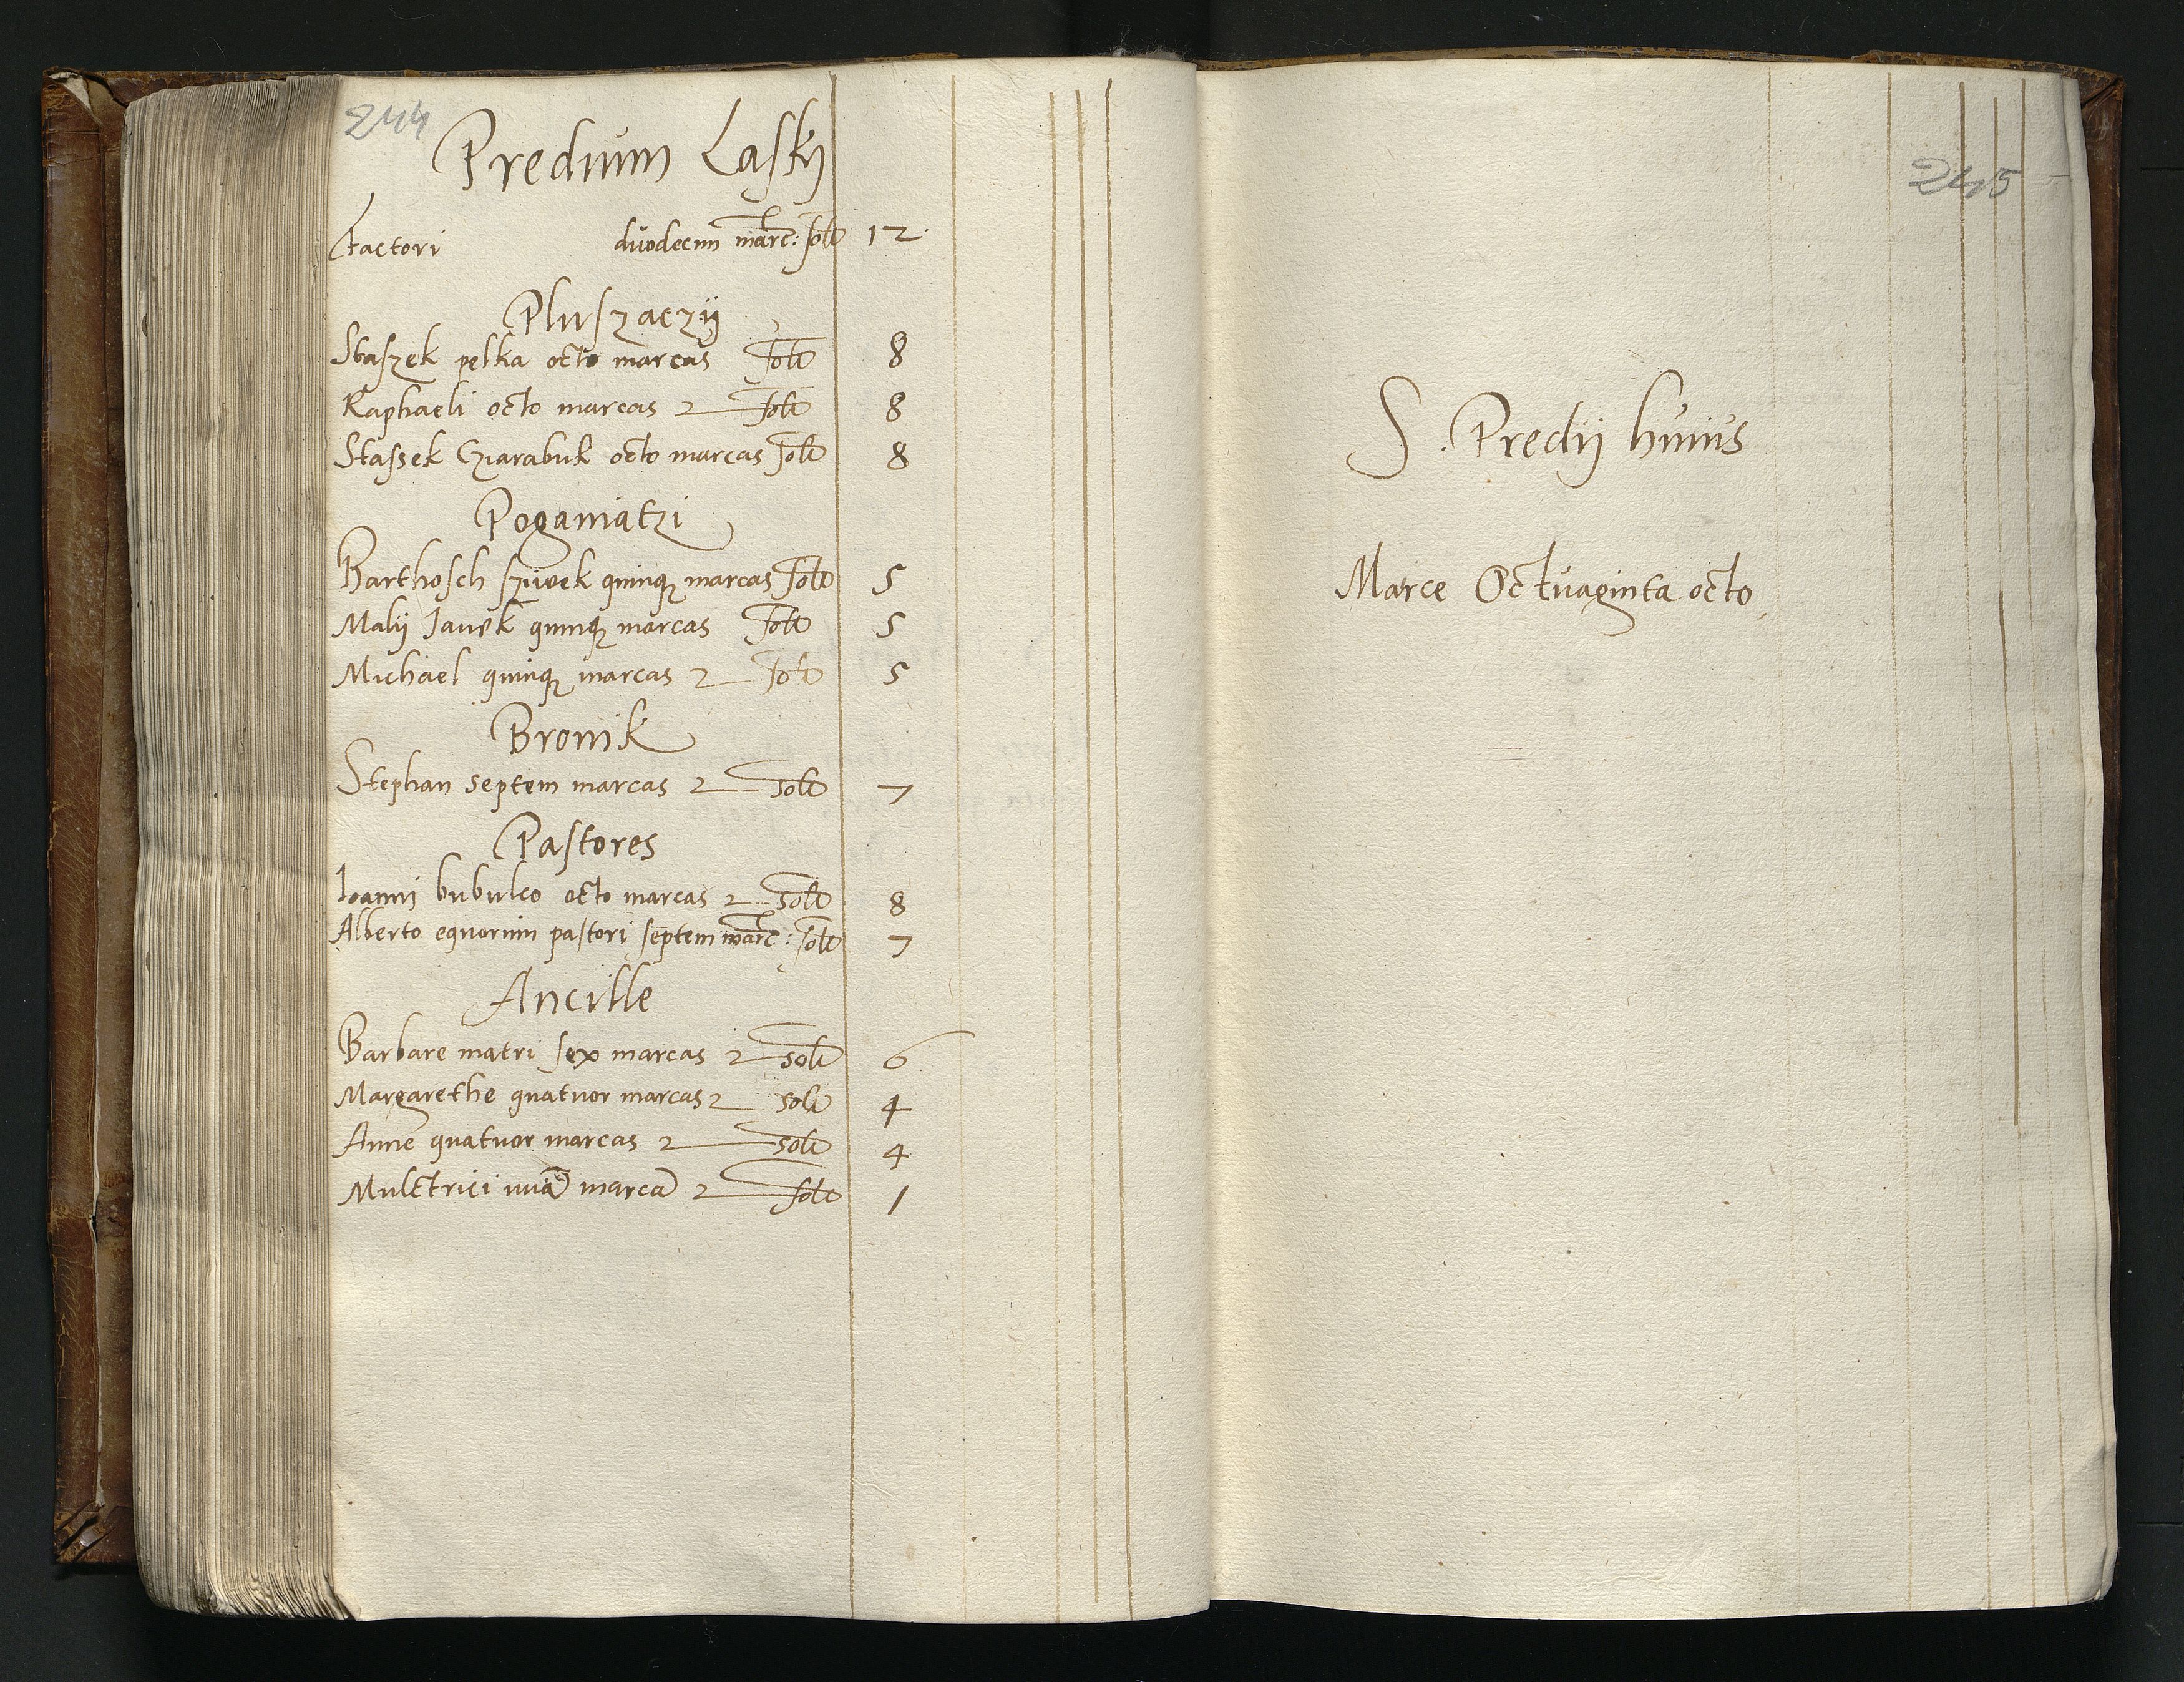 244
Predium Lasky
Factori duodecim marc: solt 12
Pluszaczÿ
Staszek pelka octo marcas solt 8
Raphaeli octo marcas solt 8
Stassek Cziarabuk octo marcas solt 8
Poganiatzi
Barthosch sziwek quinqꝫ marcas solt 5
Malÿ Janek quinqꝫ marcas solt 5
Michael quinqꝫ marcas solt 5
Bronik
Stephan septem marcas solt 7
Pastores
Ioanni bubulco octo marcas solt 8
Alberto equorum pastori septem marc: solt 7
Ancille
Barbare matri sex marcas solt 6
Margarethe quatuor marcas solt 4
Anne quatuor marcas solt 4
Mulctrici unā marcā solt 1
245
S. Predij huius
Marce Octuaginta octo